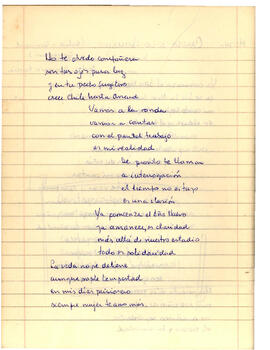 No te olvido compañera
son tus ojos pura luz
y en tu pecho
crece Chile hasta
Vamos a la ronda
vamos a cantar
con el pan del trabajo
es mi realidad
te llaman
a interrogación
el tiempo no es
es una
Ya comienza el año Nuevo
ya amanece, es claridad
más allá de nuestro estadio
todo es solidaridad
La vida no se detiene
aunque la tempestad
en mis días prisionero
siempre mujer te amo más.